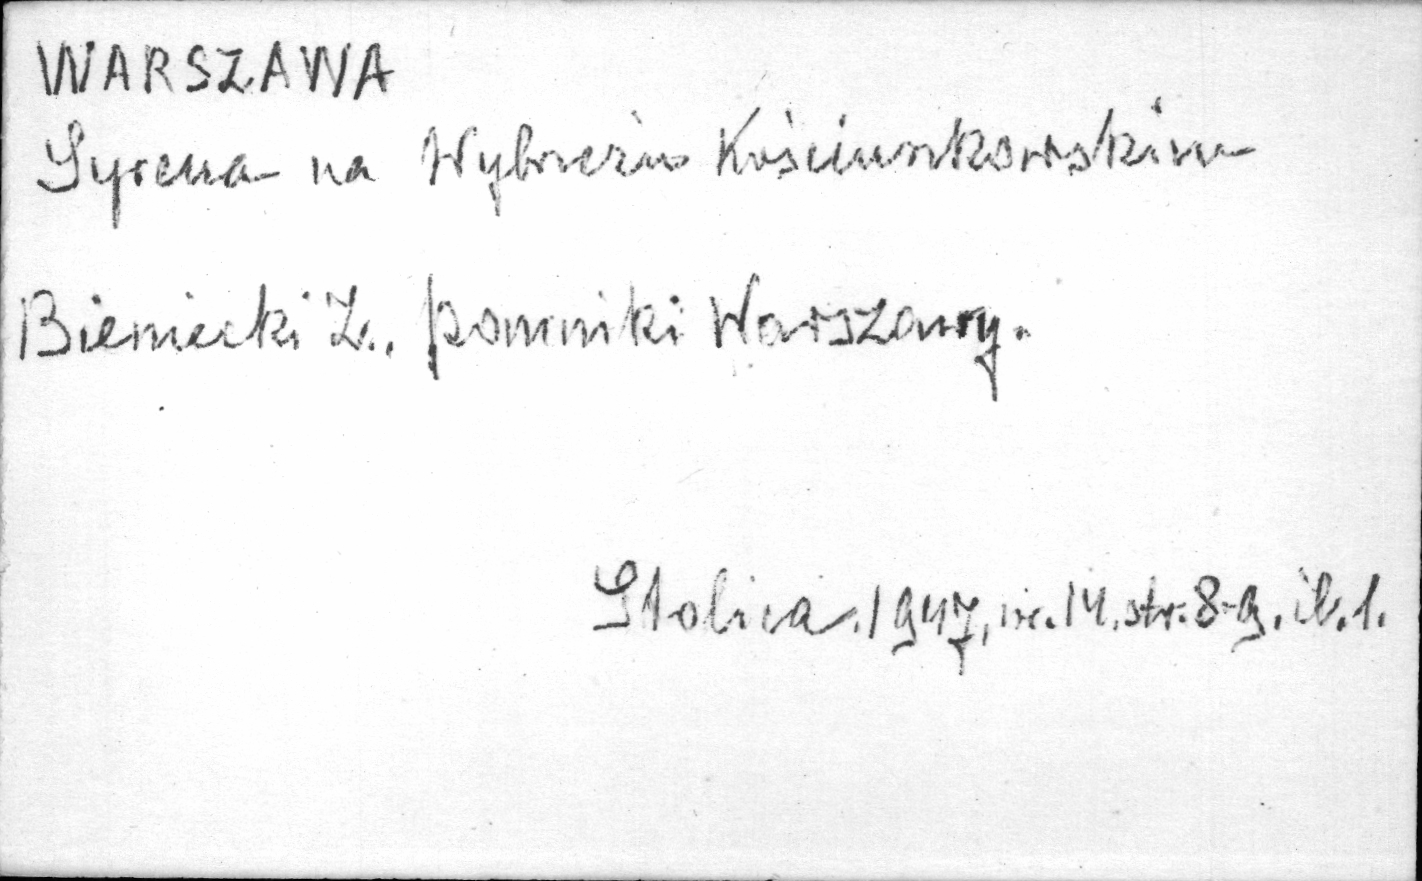 WARSZAWA
Syrena na Wybrzeżu Kościuszkowskim
Bieniecki Z., pomniki Warszawy.
Stolica. 1947, nr. 14, str. 8-9, il. 1.